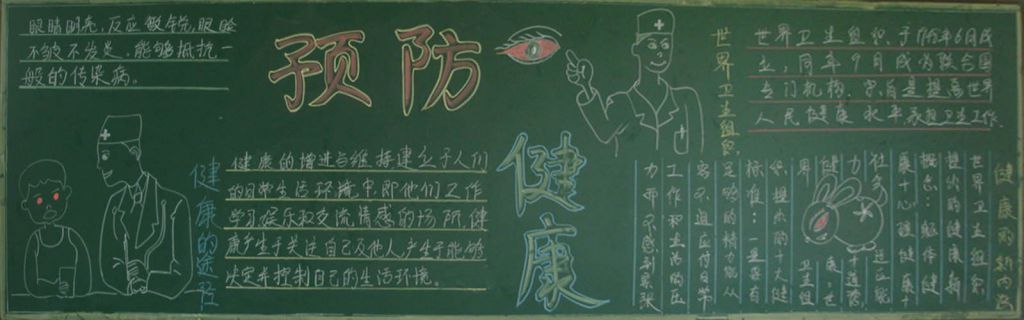 眼睛明亮,反应敏锐,眼睑
不疲不发炎。能够抵抗一
般的传染病。
预防
健康
健康的途径
健康的增进与维持建立于人们
的日常生活环境中即他们工作
学习娱乐和交流情感的场所健
康产生于关注自己及他人产生于能够
决定并控制自己的生活环境。
世界卫生组织
世界卫生组织,于1946年6月成
立,同年9月成为联合国
专门机构,宗旨是提高世界
人民健康水平承担卫生工作
健康的新内涵
世界卫生组织
提出的健康新
概念:躯体健
康十心理健康十
社会适应能
力十道德
健康,世
界卫生组
织提出的十大健
康标准:一是要有
充沛的精力能从
容不迫应付日常
工作和生活的压
力而不感到紧张